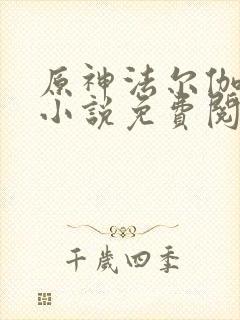 原神法尔伽
小說免費閱
千歲四季